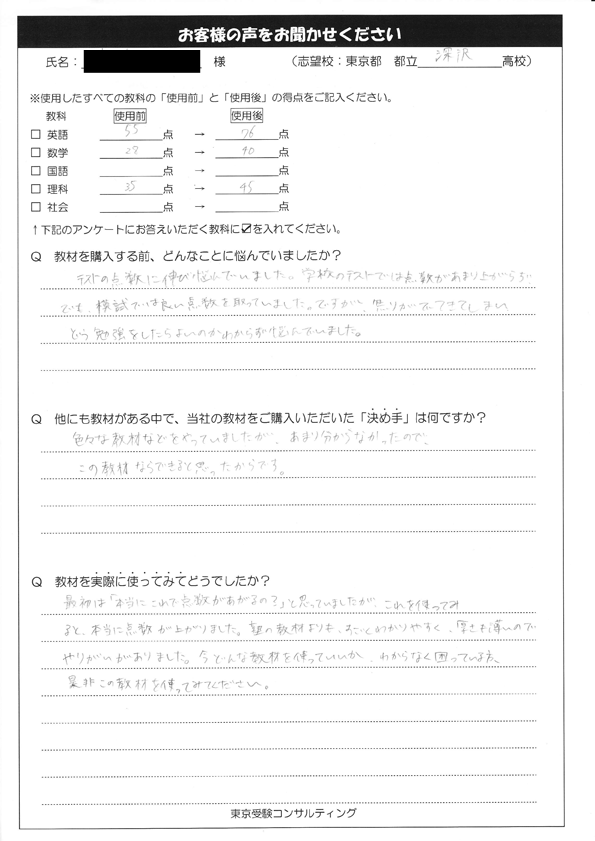 お客様の声をお聞かせください
氏名： 様 （志望校：東京都 都立 深沢 高校）
※使用したすべての教科の「使用前」と「使用後」の得点をご記入ください。
教科 使用前 使用後
□ 英語 55 点 → 76 点
□ 数学 29 点 → 40 点
□ 国語 点 → 点
□ 理科 35 点 → 45 点
□ 社会 点 → 点
↑下記のアンケートにお答えいただく教科に☑を入れてください。
Q 教材を購入する前、どんなことに悩んでいましたか？
テストの点数に伸び悩んでいました。学校のテストでは点数があまり上がらず
でも、模試では良い点数を取っていました。ですが、焦りがでてきてしまい
どう勉強をしたらよいのかわからず悩んでいました。
Q 他にも教材がある中で、当社の教材をご購入いただいた「決め手」は何ですか？
色々な教材などをやっていましたが、あまり分からなかったので、
この教材ならできると思ったからです。
Q 教材を実際に使ってみてどうでしたか？
最初は「本当にこれで点数があがるの？」と思っていましたが、これを使ってみ
ると、本当に点数が上がりました。の教材よりも、わかりやすく、厚さも薄いので
やりがいがありました。今どんな教材を使っていいか、わからなく困っている方、
是非この教材を使ってみてください。
東京受験コンサルティング